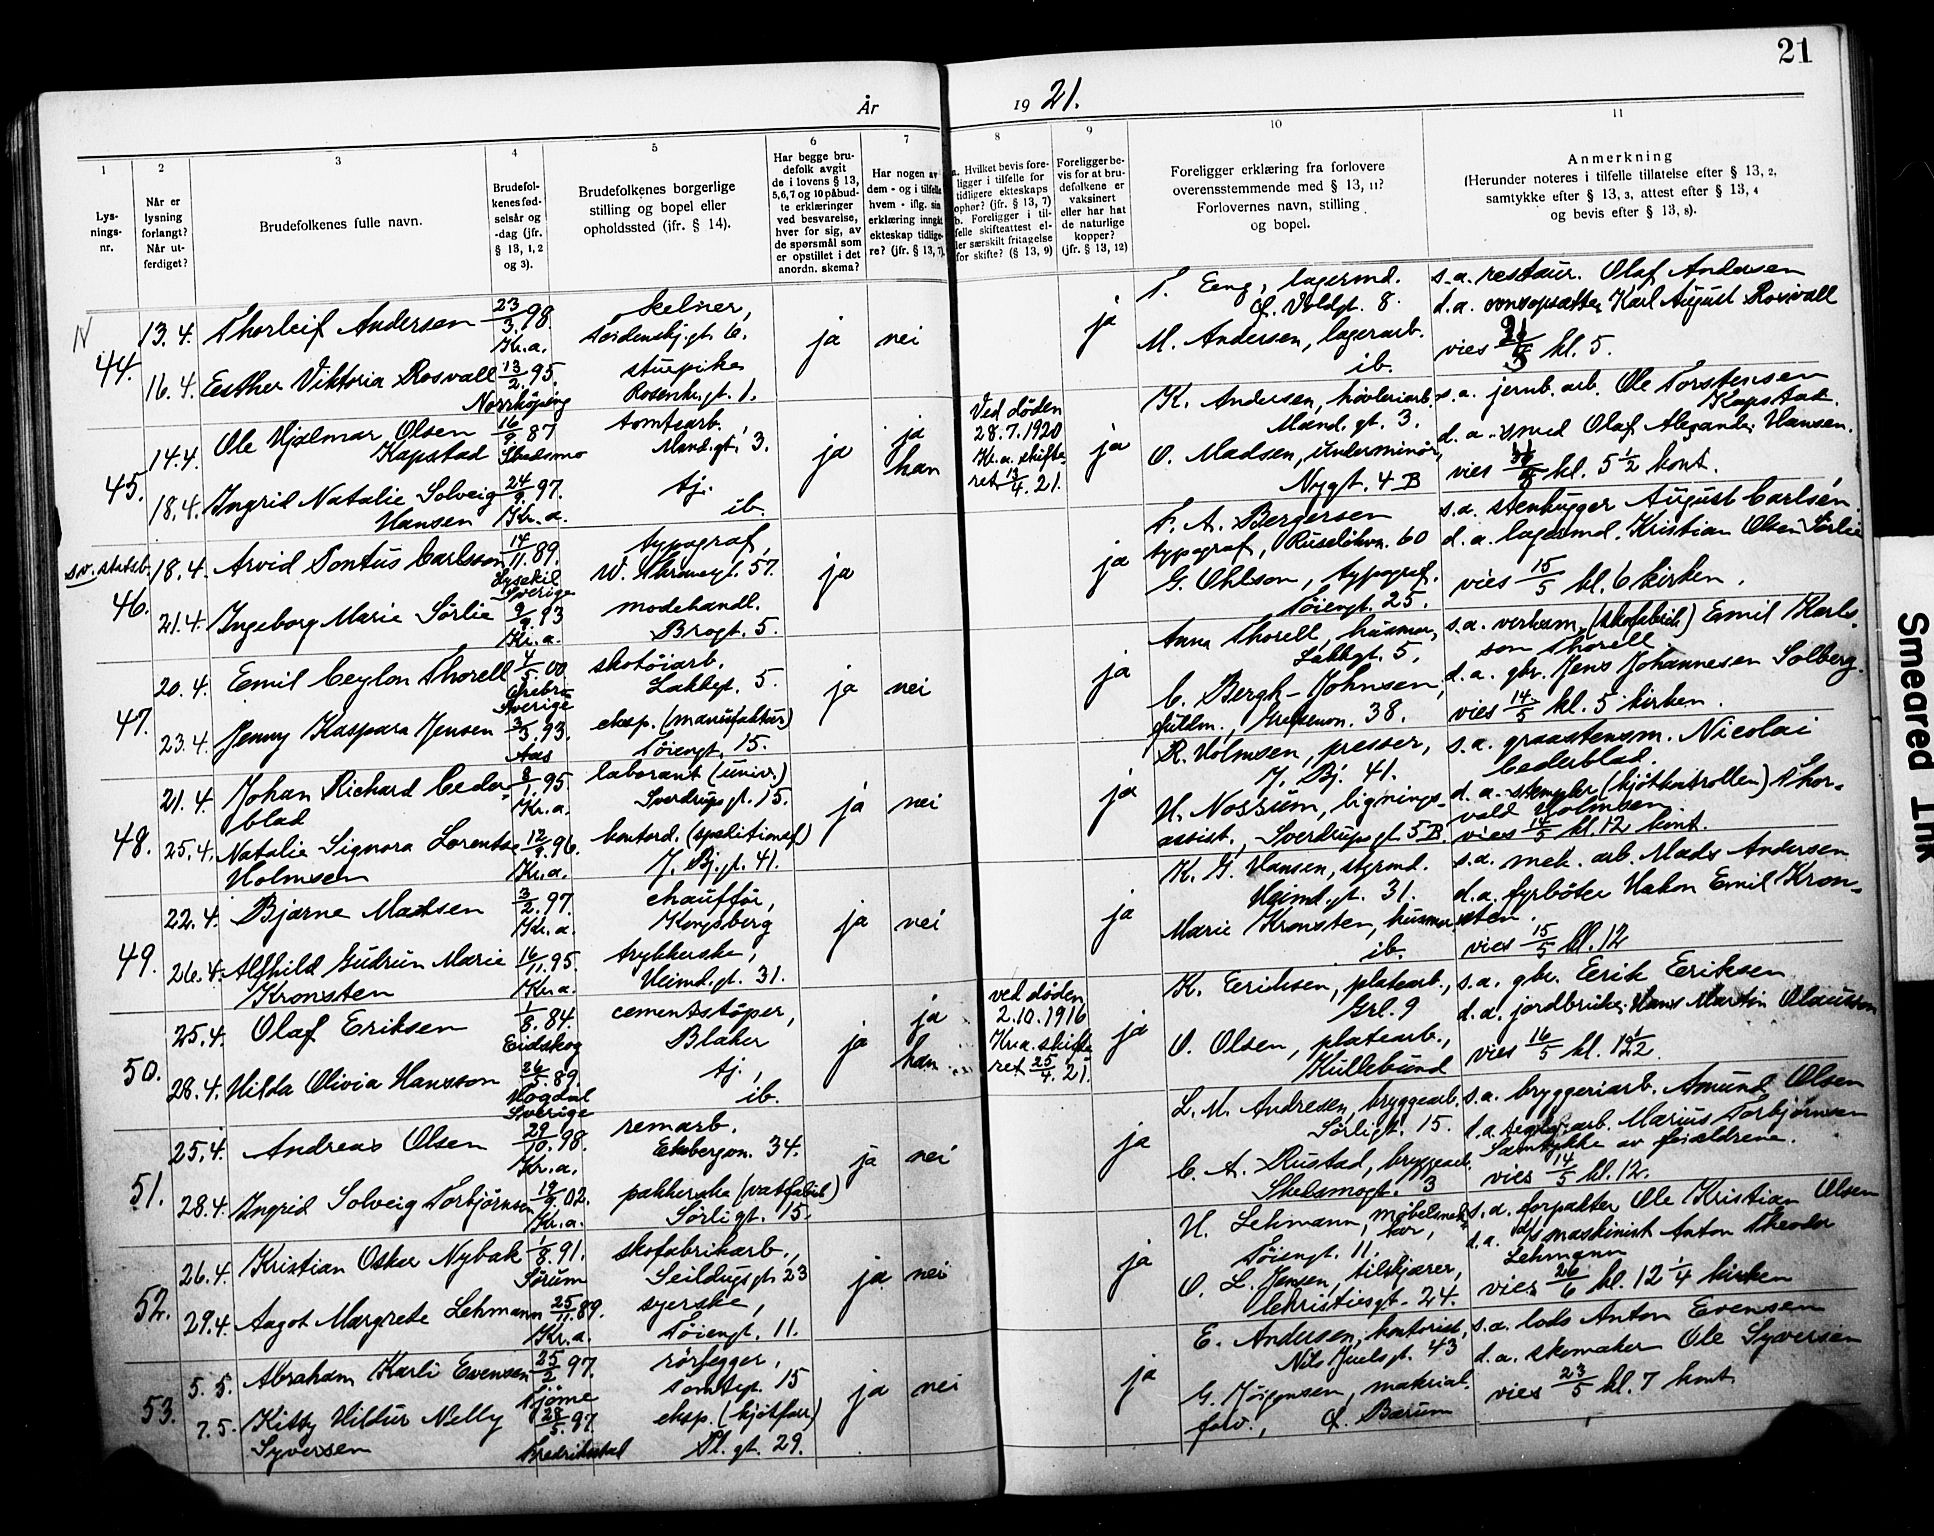 21
År 19 21.
1
Lysnings-nr.
2
Når er lysning forlangt? Når utferdiget?
3
Brudefolkenes fulle navn.
4
Brudefolkenes fødselsår og -dag (jfr. § 13, 1, 2 og 3).
5
Brudefolkenes borgerlige stilling og bopel eller opholdssted (ifr. § 14).
6
Har begge brudefolk avgit de i lovens § 13, 5,6,7 og 10 påbudte erklæringer ved besvarelse, hver for sig, av de spørsmål som er opstillet i det anordn. skema?
7
Har nogen av dem - og i tilfelle hvem - iflg. sin erklæring inngåt ekteskap tidligere? (jfr. § 13, 7).
8
a. Hvilket bevis foreligger i tilfelle for tidligere ekteskaps ophør? (jfr. § 13, 7)
b. Foreligger i tilfelle skifteattest eller særskilt fritagelse for skifte? (§ 13, 9)
9
Foreligger bevis for at brudefolkene er vaksinert eller har hat de naturlige kopper? (jfr. § 13, 12)
10
Foreligger erklæring fra forlovere overensstemmende med § 13, 11? Forlovernes navn, stilling og bopel.
11
Anmerkning
(Herunder noteres i tilfelle tillatelse efter § 13, 2, samtykke efter § 13, 3, attest efter § 13, 4 og bevis efter § 13, 8).
44.
13.4. Thorleif Andersen 23/3.98. Kr.a. kelner, 6. ja nei ja
T. Eeng, lagermd. Ø. Voldgt. 8.
s.a. restaur. Olaf Andersen
16.4. Esther Viktoria Rosvall 13/2.95. Norrköping stuepike Rosenkr.gt. 1.
M. Andersen, lagerarb. ib.
d.a. Karl August Rosvall
vies kl. 5.
45.
14.4. Ole Hjalmar Olsen Kapstad 16/9.87 Skedsmo tomtearb. Mand.gt. 3. ja ja han
Ved døden 28.7.1920 Kr.a. skifteret 13/4.21. ja
K. Andersen, høvleriarb. Mand.gt. 3.
s.a. jernb.arb. Ole Torstensen Kapstad.
18.4. Ingrid Natalie Solveig Hansen 24/9.97. Kr.a. tj. ib.
O. Madsen, underminør, Nygt. 4 B
d.a. smed Olaf Alexander Hansen.
vies kl. 5 1/2 kont.
sv. statsb.
46.
18.4. Arvid Pontus Carlsson 14/11.89. Lysekil Sverige typograf, W. Thranesgt. 57. ja ja
T. A. Bergersen typograf, Ruseløkvn. 60
s.a. stenhugger August Carlsén
21.4. Ingeborg Marie Sörlie 9/9.93 Kr.a. modehandl. Brogt. 5.
G. Ohlson, typograf. Töiengt. 25.
d.a. lagermd. Kristian Olsen Sörlie
vies 15/5 kl. 6 kirken.
47.
20.4. Emil Ceylon Thorell 4/5.00 Örebro Sverige skotöiarb. Lakkgt. 5. ja nei ja
Anna Thorell, husmor, Lakkgt. 5.
s.a. verksm. (skofabrik) Emil Karlsson Thorell
23.4. Jenny Kaspara Jensen 3/3.93. Aas eksp. (manufaktur) Töiengt. 15.
C. Bergh-Johnsen, fullm., Grefsenvn. 38.
d.a. gbr. Jens Johannesen Solberg.
vies 14/5 kl. 5 kirken.
48.
21.4. Johan Richard Cederblad 8/1.95 Kr.a. laborant (univ.) Sverdrupsgt. 15. ja nei ja
R. Holmsen, presser, J. Bj. 41.
s.a. graastensm. Nicolai Cederblad.
25.4. Natalie Signora Lorentze Holmsen 12/9.96. Kr.a. kontord. (speditionsf) J. Bj.gt. 41.
H. Nossum, ligningsassist., Sverdrupsgt. 5 B.
d.a. stempler (kjötkontrollen) Thorvald Holmsen
vies 14/5 kl. 12 kont.
49.
22.4. Bjarne Madsen 3/2.97. Kr.a. chaufför, Kongsberg ja nei ja
K. G. Hansen, styrmd. Heimd.gt. 31.
s.a. mek. arb. Mads Andersen
26.4. Alfhild Gudrun Marie Kronsten 16/11.95. Kr.a. trykkerske, Heimd.gt. 31.
Marie Kronsten, husmor ib.
d.a. fyrböter Hakon Emil Kronsten.
vies 15/5 kl. 12
50.
25.4. Olaf Eriksen 1/8.84. Eidskog cementstöper, Blaker ja ja han
ved døden 2.10.1916 Kr.a. skifteret 25/4.21. ja
K. Eriksen, platearb., Grl. 9
s.a. gbr. Eerik Eriksen
28.4. Hilda Olivia Hansson 26/5.89. Hogdal Sverige tj., ib.
O. Olsen, platearb., Kullebund
d.a. jordbruker Hans Martin Olausson
vies 16/5 kl. 12 1/2.
51.
25.4. Andreas Olsen 29/10.98. Kr.a. remarb. Ekebergvn. 34. ja nei ja
L. M. Andresen, bryggearb. Sörligt. 15.
s.a. bryggeriarb. Amund Olsen
28.4. Ingrid Solveig Torbjörnsen 19/9.02. Kr.a. pakkerske (vatfabrik) Sörligt. 15.
C. A. Rustad, bryggearb. Skedsmogt. 3
d.a. arb. Marius Torbjörnsen
Samtykke av forældrene.
vies 14/5 kl. 12.
52.
26.4. Kristian Oskar Nybak 1/8.91. Sörum skofabrikarb., Seildugsgt. 23 ja nei ja
H. Lehmann, möbelsnekker, Töiengt. 11.
s.a. forpakter Ole Kristian Olsen
29.4. Aagot Margrete Lehmann 25/11.89. Kr.a. syerske, Töiengt. 11.
O. L. Jensen, tilskjærer, Christiesgt. 24.
d.a. maskinist Anton Theodor Lehmann
vies 26/6 kl. 12 1/4 kirken
53.
5.5. Abraham Karli Evensen 25/2.97. Tjöme rörlegger, Tomtegt. 15 ja nei ja
E. Andersen, kontorist, Nils Juelsgt. 43
s.a. lods Anton Evensen
7.5. Kitty Hildur Nelly Syversen 28/5.97. Fredrikstad eksp. (kjötforr.) Pl.gt. 29.
G. Jörgensen, material.forv., Ø. Bærum
d.a. skomaker Ole Syversen
vies 23/5 kl. 7 kont.
Smeared Ink